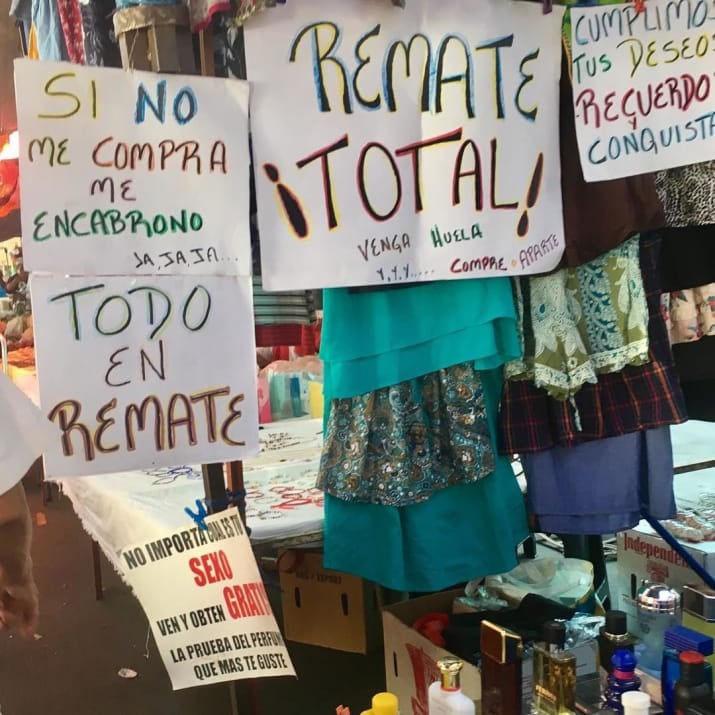 SI NO
ME COMPRA
ME
ENCABRONO
JA, JA, JA...
REMATE
¡TOTAL!
VENGA HUELA
Y, Y, Y..... COMPRE O APARTE
CUMPLIMOS
TUS DESEOS
RECUERDO
CONQUISTA
TODO
EN
REMATE
NO IMPORTA CUAL ES TU
SEXO
VEN Y OBTEN GRATIS
LA PRUEBA DEL PERFUME
QUE MAS TE GUSTE